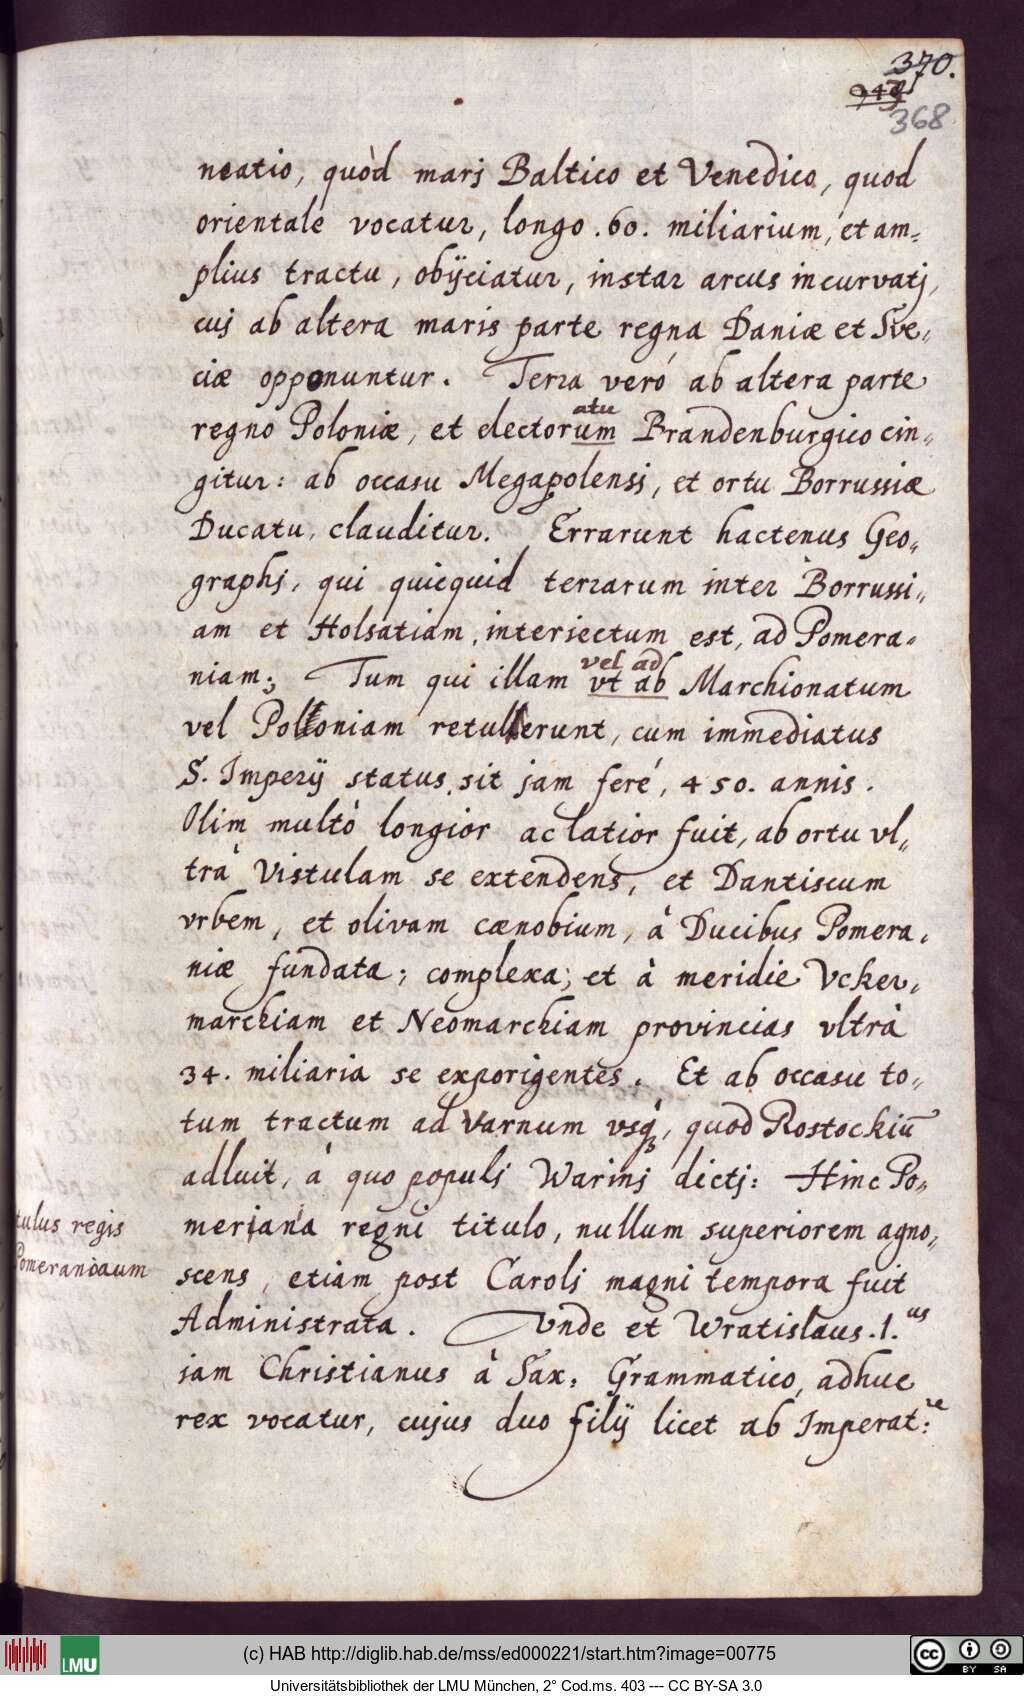 370.
368
neatio, quòd marj Baltico et Venedico, quod
orientale vocatur, longo .60. miliarium, et am-
plius tractu, obÿciatur, instar arcus incurvatj,
cuj ab altera maris parte regna Daniæ et Sve-
ciæ opponuntur. Terra veró ab altera parte
atu
regno Poloniæ, et electorum Brandenburgico cin-
gitur: ab occasu Megapolensj, et ortu Borrussiæ
Ducatu, clauditur. Errarunt hactenus Geo-
graphj, qui quicquid terrarum inter Borrussi-
am et Holsatiam, interiectum est, ad Pomera-
niam; Tum qui illam vt ab Marchionatum
vel ad
vel Poloniam retulerunt, cum immediatus
S. Imperÿ status sit jam feré, 450. annis.
Olim multò longior ac latior fuit, ab ortu vl-
trà Vistulam se extendens, et Dantiscum
vrbem, et olivam cænobium, à Ducibus Pomera-
niæ fundata; complexa; et à meridie Vcker-
marchiam et Neomarchiam provincias vltrà
34. miliaria se exporigentes. Et ab occasu to-
tum tractum ad Varnum vsq́ꝫ, quod Rostockiū
adluit, à quo populj Warinj dictj: Hinc Po-
meriana regni titulo, nullum superiorem agno-
scens, etiam post Carolj magni tempora fuit
Administrata. Vnde et Wratislaus .1.us
jam Christianus à Sax: Grammatico, adhuc
rex vocatur, cujus duo filÿ licet ab Imperat:re
tulus regis
Pomeranoaum
(c) HAB http://diglib.hab.de/mss/ed000221/start.htm?image=00775
Universitätsbibliothek der LMU München, 2° Cod.ms. 403 --- CC BY-SA 3.0
LMU
cc
BY
SA